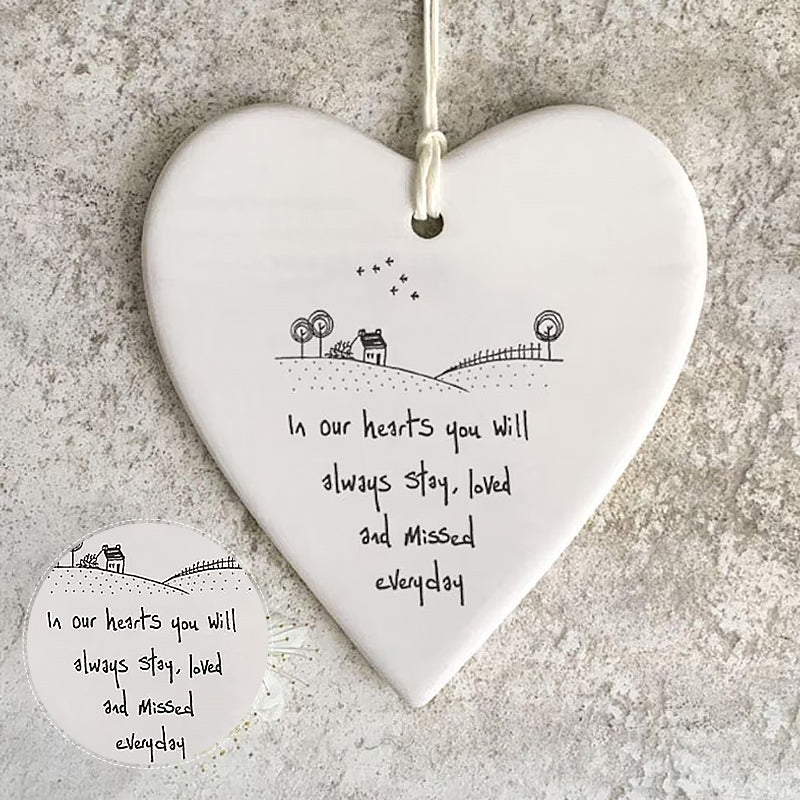 In our hearts you will
always stay, loved
and Missed
everyday
In our hearts you will
always stay, loved
and Missed
everyday